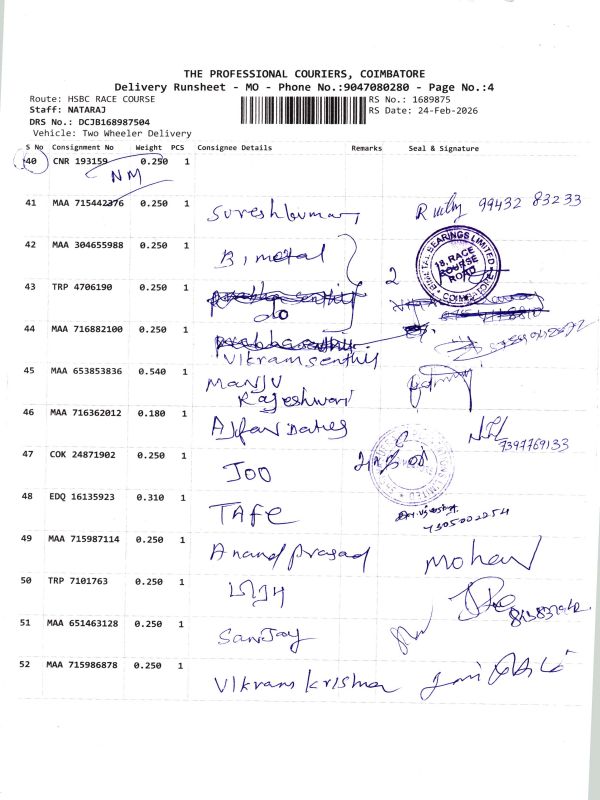 THE PROFESSIONAL COURIERS, COIMBATORE
Delivery Runsheet - MO - Phone No.:9047080280 - Page No.:4
Route: HSBC RACE COURSE
RS No.: 1689875
Staff: NATARAJ
RS Date: 24-Feb-2026
DRS No.: DCJB168987504
Vehicle: Two Wheeler Delivery
S No Consignment No Weight PCS Consignee Details Remarks Seal & Signature
40 CNR 193159 0.250 1
NM
41 MAA 715442376 0.250 1 Sureshkumar 99432 83233
42 MAA 304655988 0.250 1 Bimetal 2
BIMETAL BEARINGS LIMITED
18, RACE COURSE ROAD
COIMBATORE
43 TRP 4706190 0.250 1 do
44 MAA 716882100 0.250 1
Vikram senthil
45 MAA 653853836 0.540 1 Manju
Rajeshwari
46 MAA 716362012 0.180 1
7397769133
47 COK 24871902 0.250 1 JOO
48 EDQ 16135923 0.310 1 TAFE
7305002254
49 MAA 715987114 0.250 1 Anand prasad Mohan
50 TRP 7101763 0.250 1
51 MAA 651463128 0.250 1 Sanjoy
52 MAA 715986878 0.250 1 Vikram krishna